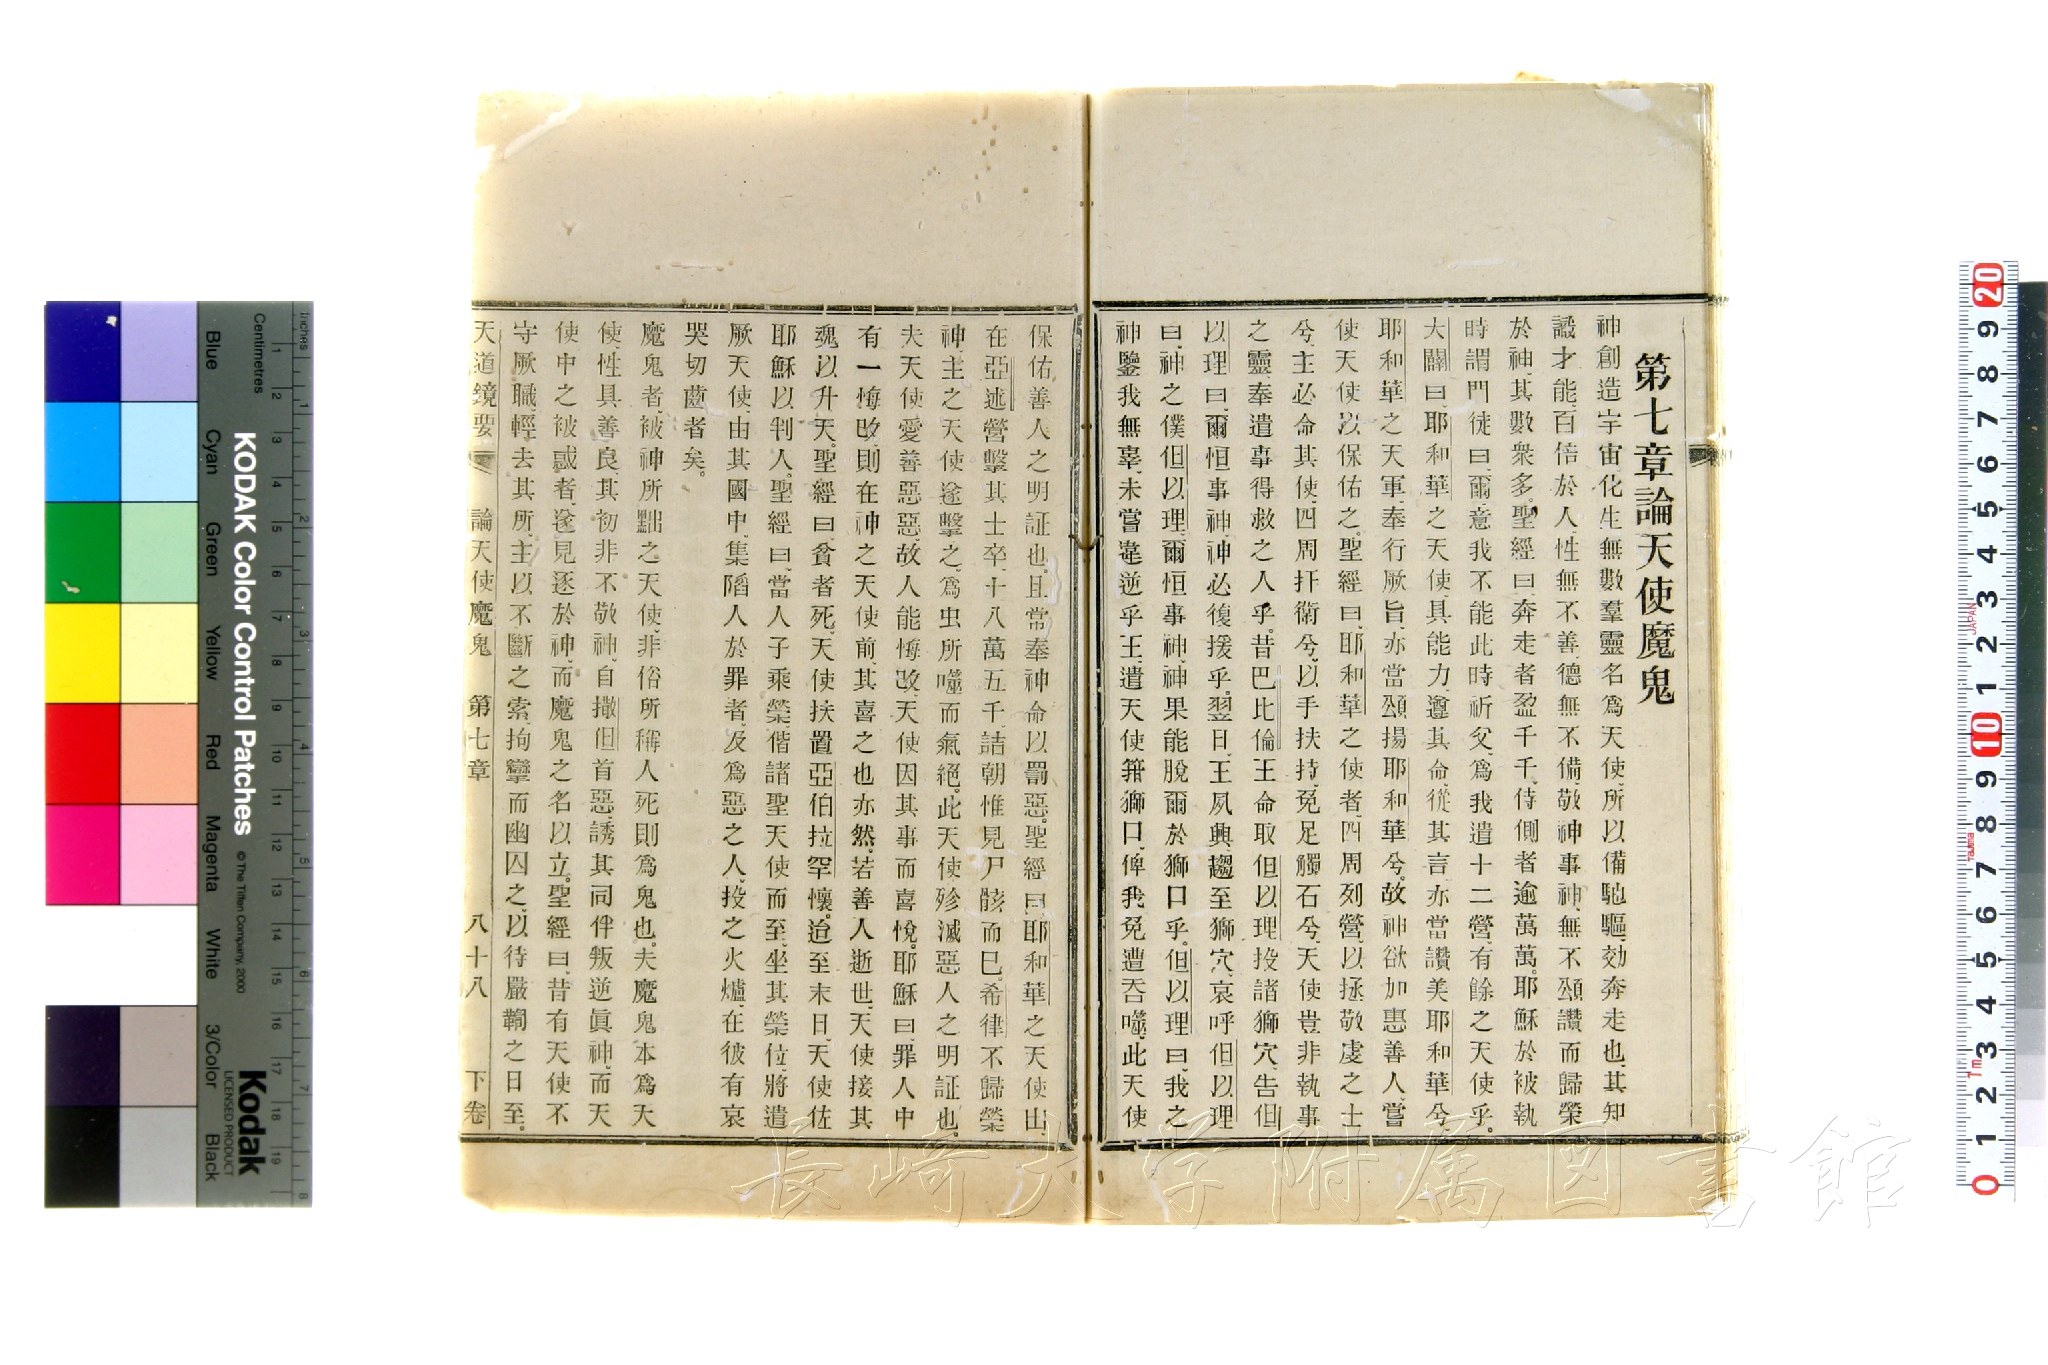 第七章論天使魔鬼
神創造宇宙、化生無數羣靈、名爲天使、所以備馳驅、効奔走也、其知
識才能、百倍於人、性無不善、德無不備、敬神事神、無不頌讚而歸榮
於神、其數衆多、聖經曰、奔走者盈千千、侍側者逾萬萬。耶穌於被執
時、謂門徒曰、爾意我不能此時祈父、爲我遣十二營、有餘之天使乎。
大闢曰、耶和華之天使、具能力、遵其命、從其言、亦當讚美耶和華兮、
耶和華之天軍、奉行厥旨、亦當頌揚耶和華兮。故神欲加惠善人、嘗
使天使以保佑之。聖經曰、耶和華之使者、四周列營、以拯敬虔之士
兮、主必命其使、四周扞衛兮、以手扶持、免足觸石兮、天使豈非執事
之靈、奉遣事得救之人乎。昔巴比倫王命取但以理、投諸獅穴、告但
以理曰、爾恒事神、神必復援乎、翌日、王夙興、趨至獅穴、哀呼但以理
曰、神之僕但以理、爾恒事神、神果能脫爾於獅口乎。但以理曰、我之
神鑒我無辜、未嘗違逆乎王、遣天使箝獅口、俾我免遭吞噬、此天使
保佑善人之明証也、且常奉神命以罰惡。聖經曰、耶和華之天使出、
在亞述營擊其士卒、十八萬五千、詰朝惟見尸骸而已、希律不歸榮
神、主之天使遂擊之、爲虫所噬而氣絕。此天使殄滅惡人之明証也。
夫天使愛善惡惡、故人能悔改、天使因其事而喜悅。耶穌曰、罪人中
有一悔改、則在神之天使前、其喜之也亦然。若善人逝世、天使接其
魂以升天。聖經曰、貧者死、天使扶置亞伯拉罕懷。迨至末日、天使佐
耶穌以判人。聖經曰、當人子乘榮、偕諸聖天使而至、坐其榮位、將遣
厥天使、由其國中、集陷人於罪者、及爲惡之人、投之火爐、在彼有哀
哭切齒者矣。
魔鬼者、被神所黜之天使、非俗所稱人死則爲鬼也。夫魔鬼本爲天
使、性具善良、其初非不敬神、自撒但首惡、誘其同伴、叛逆眞神、而天
使中之被惑者、遂見逐於神、而魔鬼之名以立。聖經曰、昔有天使不
守厥職、輕去其所、主以不斷之索拘攣而幽囚之、以待嚴鞫之日至。
天道鏡要 論天使魔鬼 第七章 八十八 下卷
KODAK Color Control Patches © The Tiffen Company, 2000
Kodak
LICENSED PRODUCT
Inches 1 2 3 4 5 6 7 8
Centimetres 1 2 3 4 5 6 7 8 9 10 11 12 13 14 15 16 17 18 19
Blue Cyan Green Yellow Red Magenta White 3/Color Black
20 9 8 7 6 5 4 3 2 1 10 9 8 7 6 5 4 3 2 1 0
JAPAN
長崎大学附属図書館